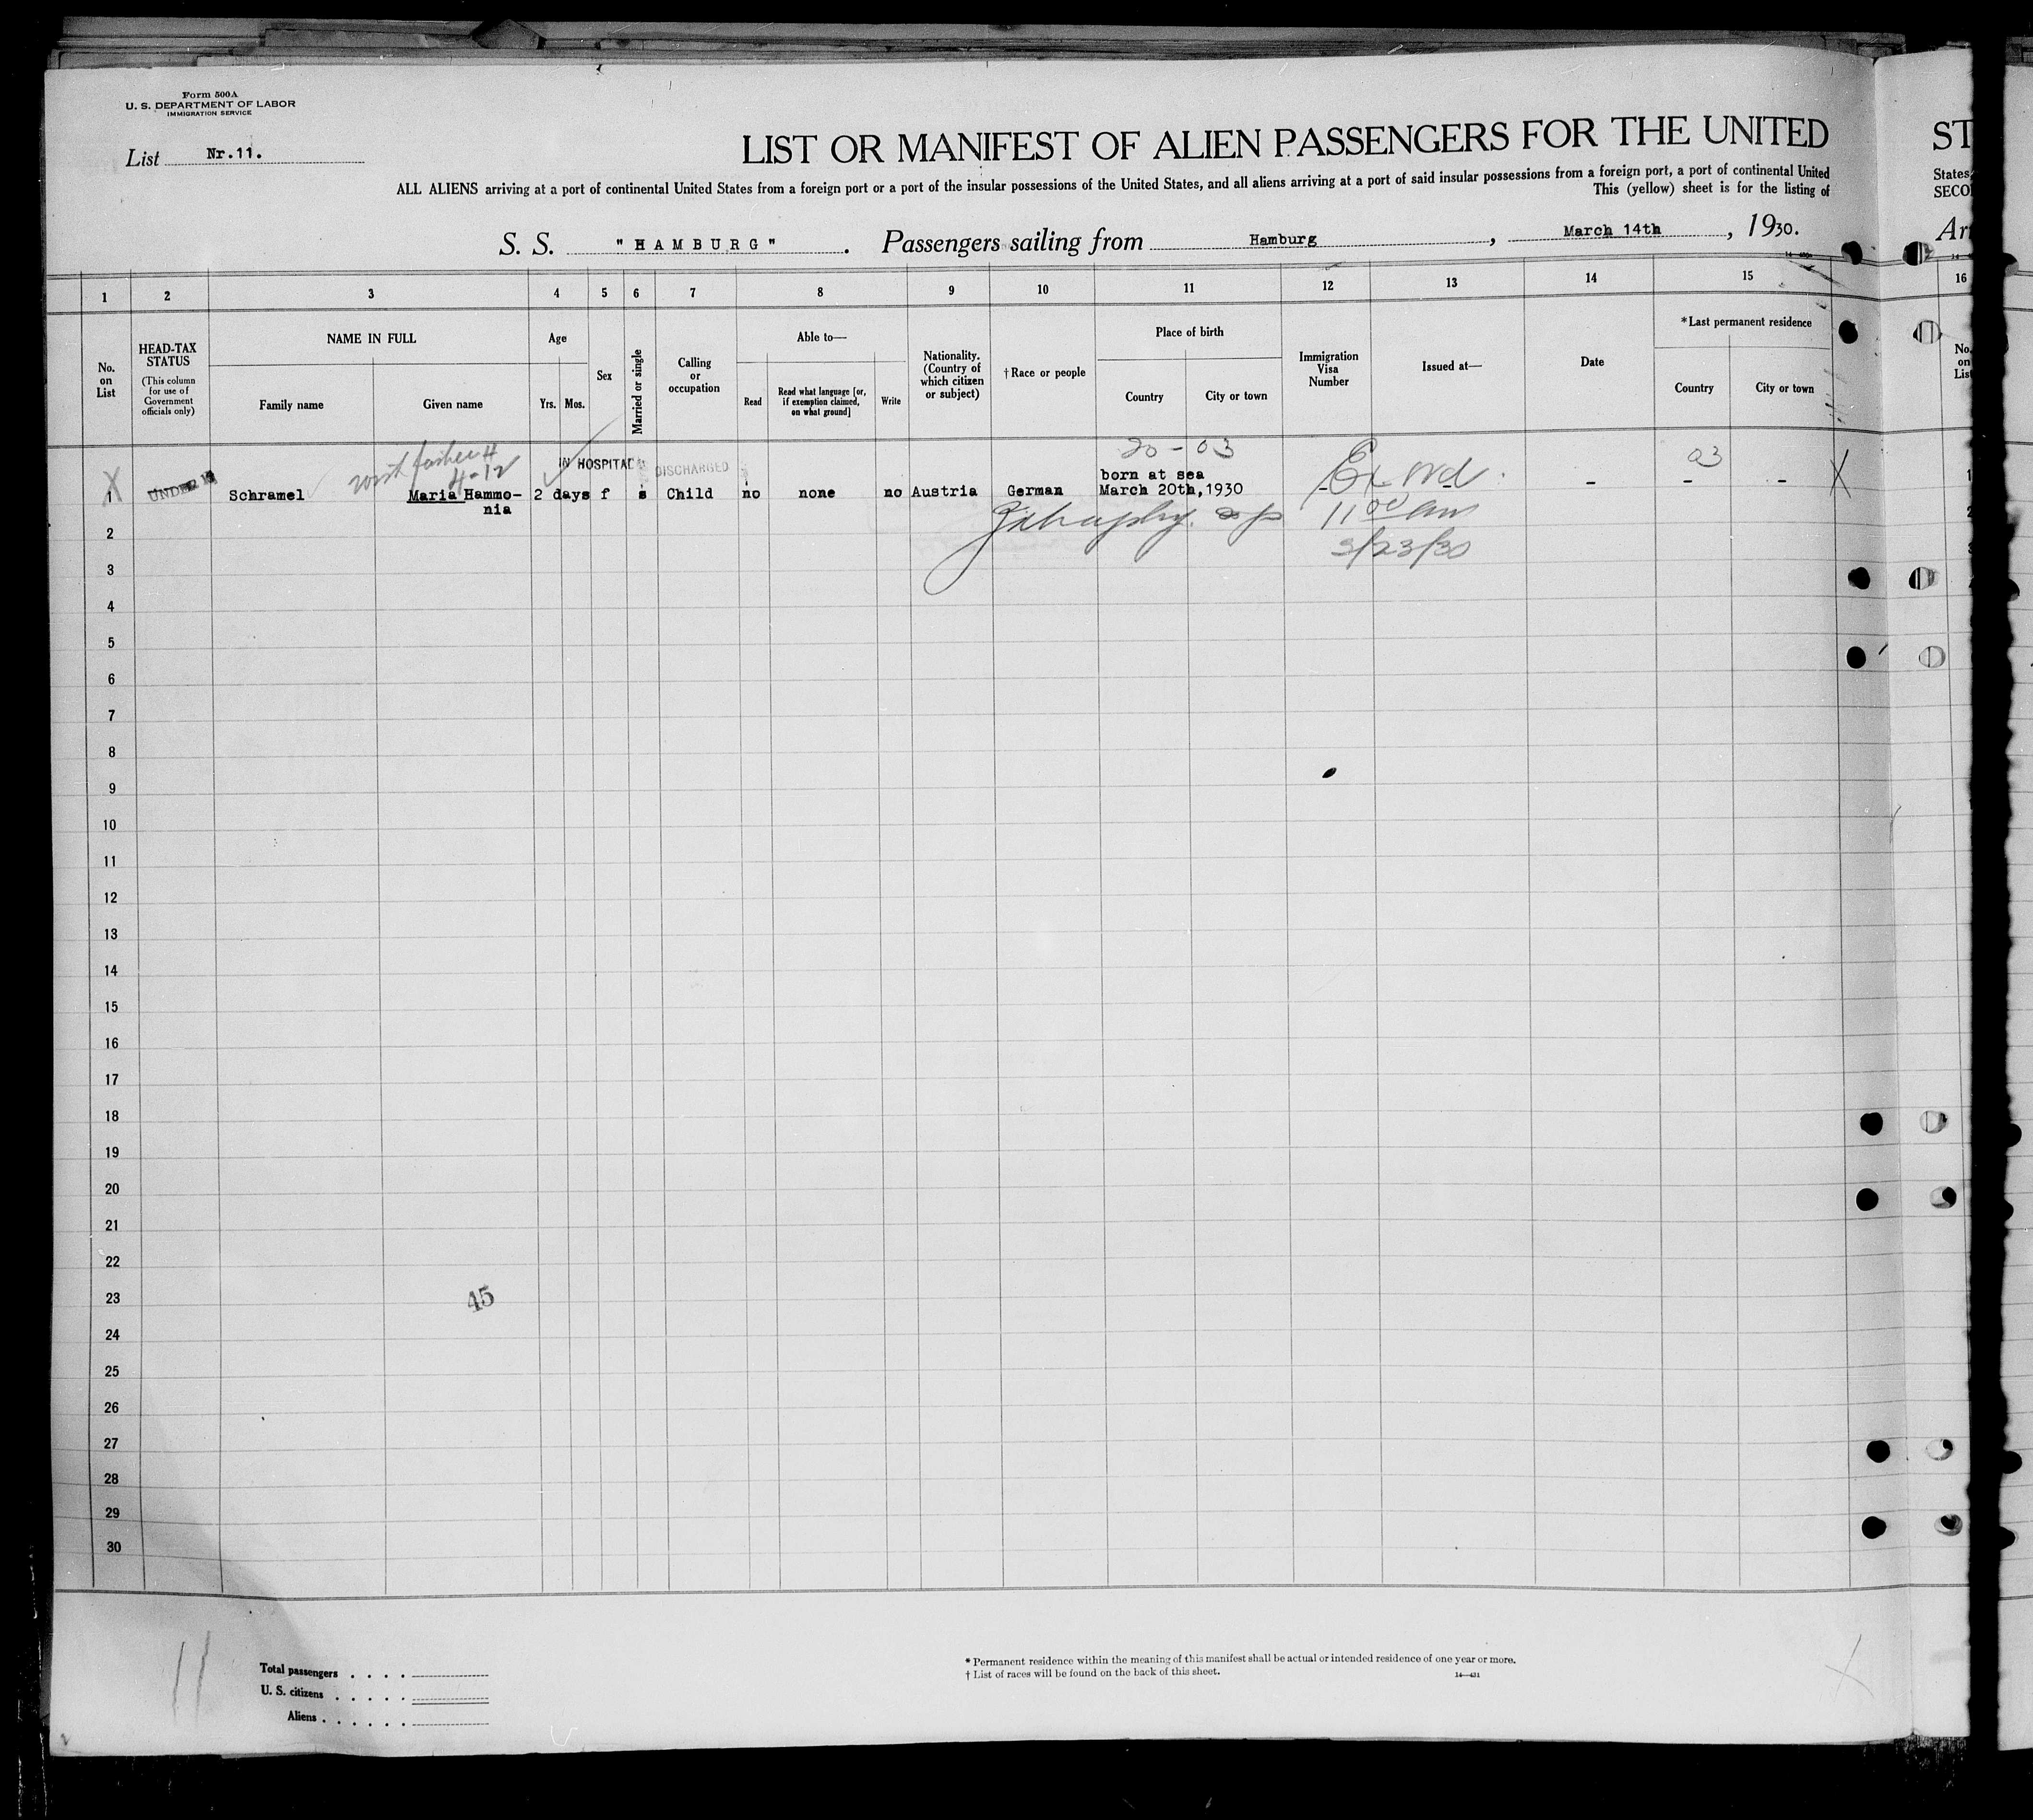 Form 500A
U. S. DEPARTMENT OF LABOR
IMMIGRATION SERVICE
List Nr.11.
LIST OR MANIFEST OF ALIEN PASSENGERS FOR THE UNITED
ST
ALL ALIENS arriving at a port of continental United States from a foreign port or a port of the insular possessions of the United States, and all aliens arriving at a port of said insular possessions from a foreign port, a port of continental United
States,
This (yellow) sheet is for the listing of
SECO
S. S. "HAMBURG". Passengers sailing from Hamburg, March 14th, 1930.
Arr
1 2 3 4 5 6 7 8 9 10 11 12 13 14 15 16
No. on List
HEAD-TAX STATUS
(This column for use of Government officials only)
NAME IN FULL
Family name
Given name
Age
Yrs.
Mos.
Sex
Married or single
Calling or occupation
Able to—
Read
Read what language [or, if exemption claimed, on what ground]
Write
Nationality. (Country of which citizen or subject)
†Race or people
Place of birth
Country
City or town
Immigration Visa Number
Issued at—
Date
*Last permanent residence
Country
City or town
No. on List
with father 4
4-12
IN HOSPITAL DISCHARGED
20-03
03
X 1 UNDER 16 Schramel Maria Hammo- 2 days f s Child no none no Austria German born at sea - - - - - X 1
nia
March 20th, 1930
Ex ord.
11 00 am
3/23/30
2
3
4
5
6
7
8
9
10
11
12
13
14
15
16
17
18
19
20
21
22
23
45
24
25
26
27
28
29
30
11
Total passengers . . . .
U. S. citizens . . . . .
Aliens . . . . . .
* Permanent residence within the meaning of this manifest shall be actual or intended residence of one year or more.
† List of races will be found on the back of this sheet.
14—431
X